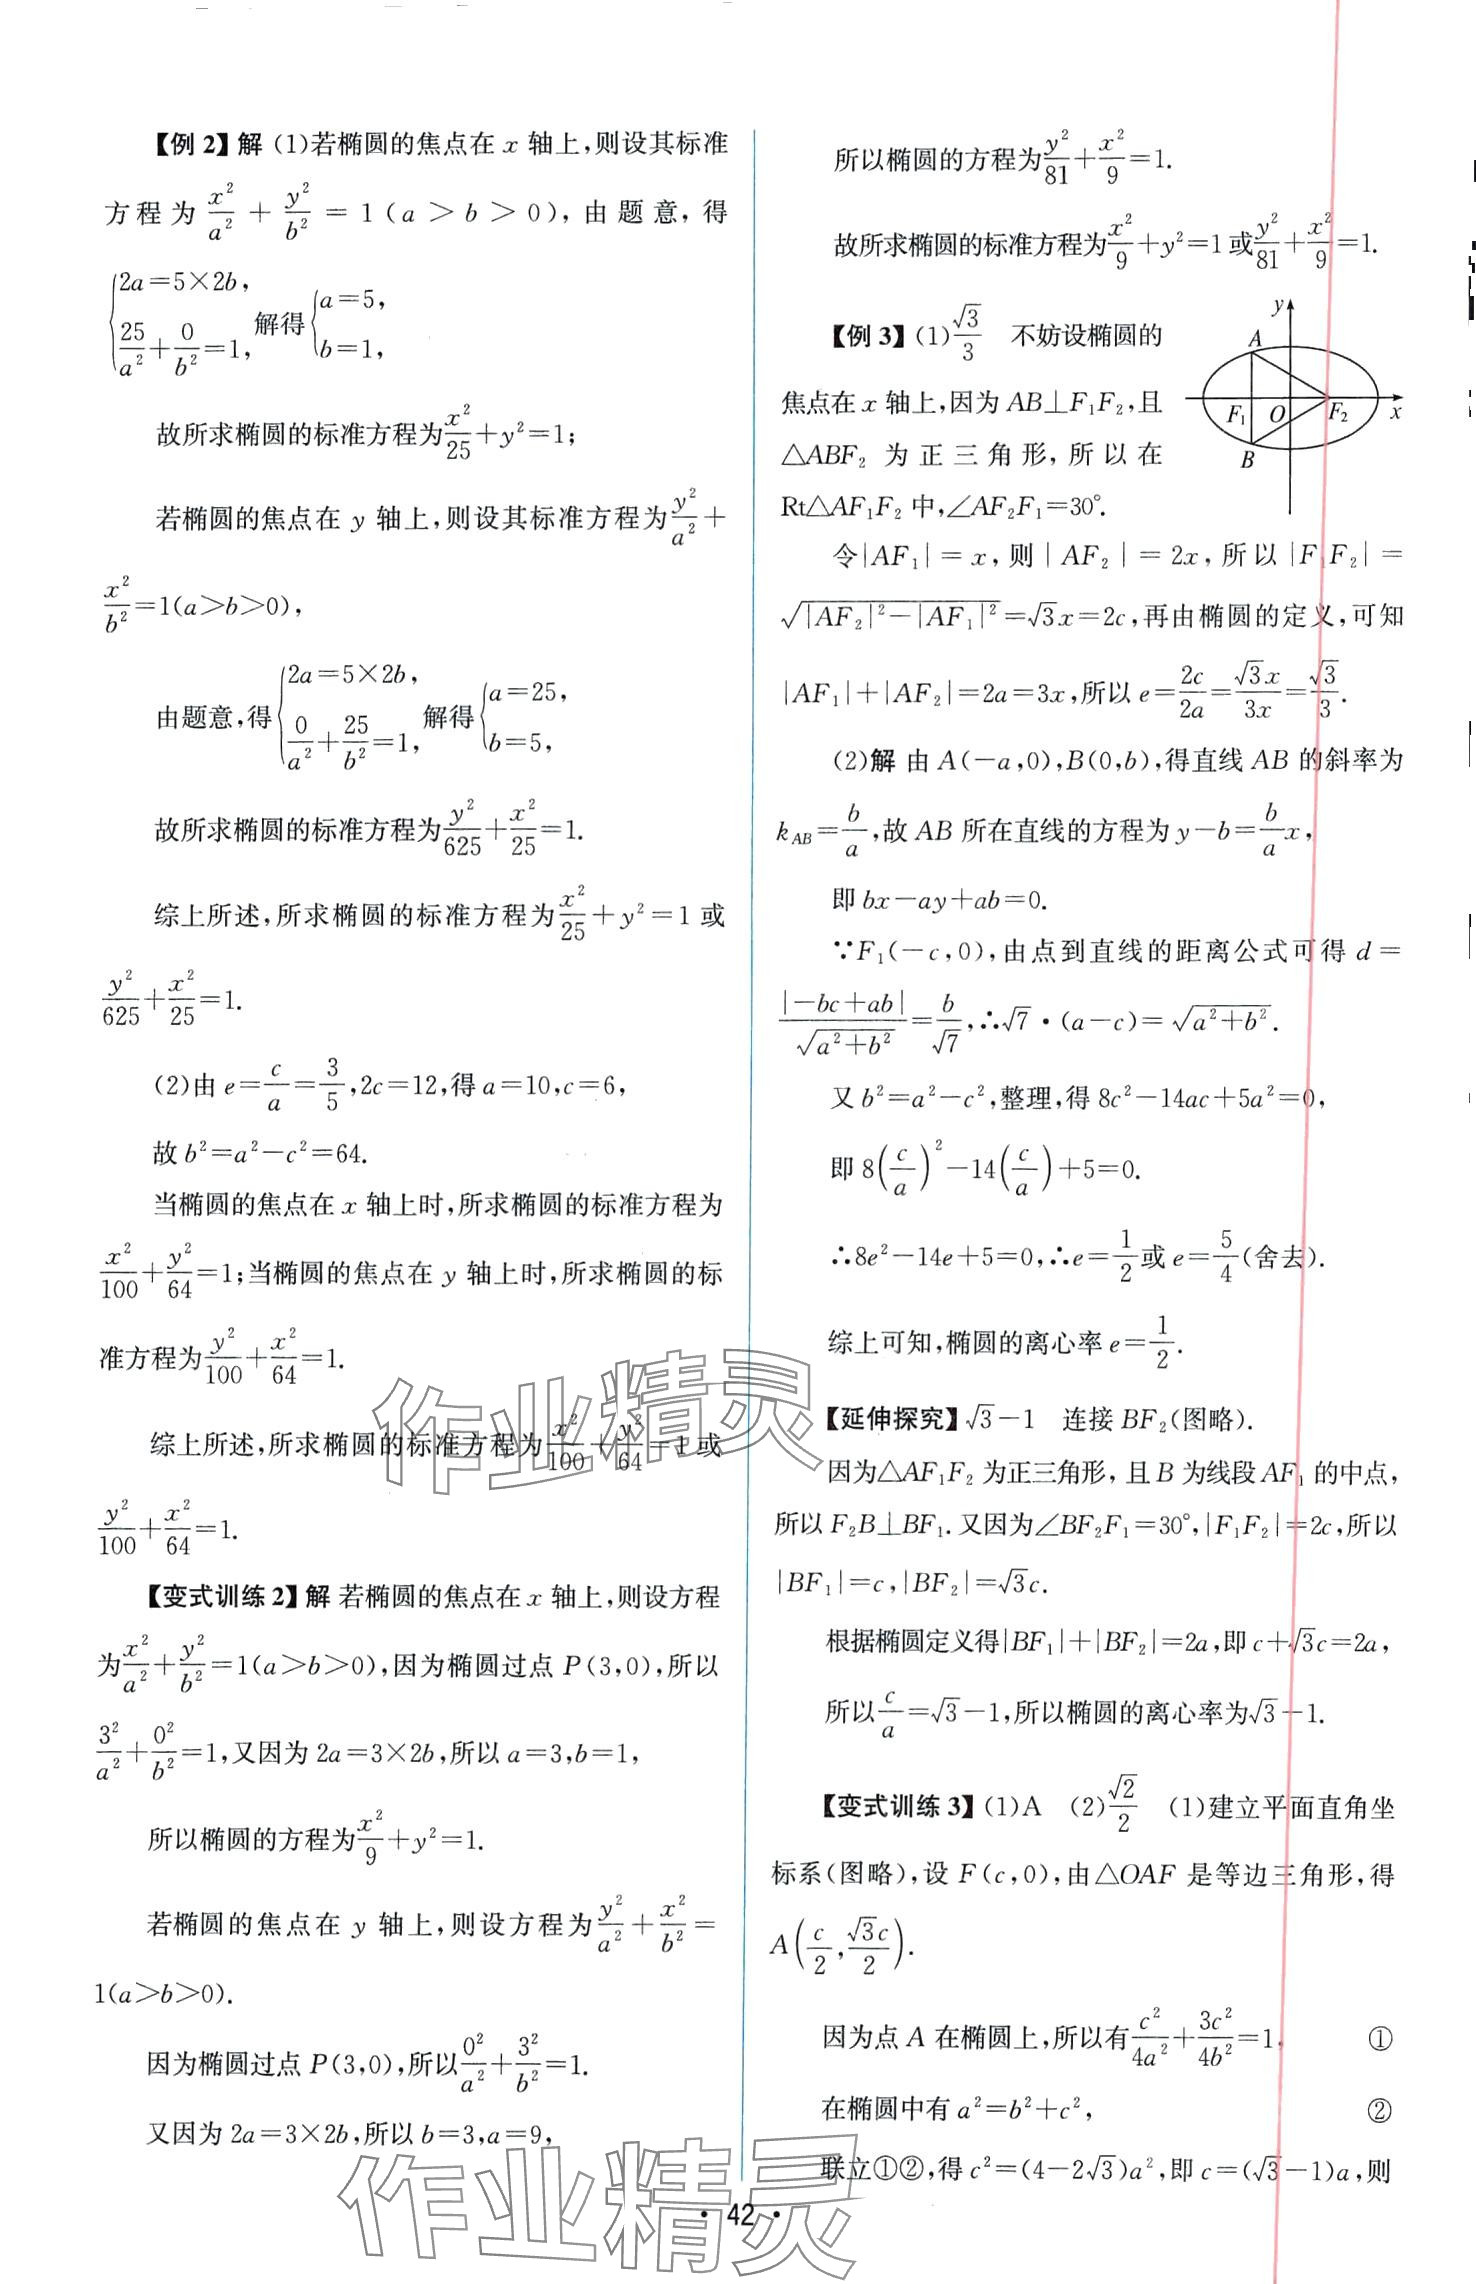 【例2】解 (1)若椭圆的焦点在 x 轴上,则设其标准
方程为 x²/a² + y²/b² = 1(a>b>0),由题意,得
{2a=5×2b, 25/a²+0/b²=1, 解得{a=5, b=1,
故所求椭圆的标准方程为x²/25+y²=1;
若椭圆的焦点在 y 轴上,则设其标准方程为y²/a²+
x²/b²=1(a>b>0),
由题意,得{2a=5×2b, 0/a²+25/b²=1, 解得{a=25, b=5,
故所求椭圆的标准方程为y²/625+x²/25=1.
综上所述,所求椭圆的标准方程为x²/25+y²=1 或
y²/625+x²/25=1.
(2)由 e=c/a=3/5,2c=12,得 a=10,c=6,
故 b²=a²-c²=64.
当椭圆的焦点在 x 轴上时,所求椭圆的标准方程为
x²/100+y²/64=1;当椭圆的焦点在 y 轴上时,所求椭圆的标
准方程为y²/100+x²/64=1.
综上所述,所求椭圆的标准方程为x²/100+y²/64=1 或
y²/100+x²/64=1.
【变式训练2】解 若椭圆的焦点在 x 轴上,则设方程
为x²/a²+y²/b²=1(a>b>0),因为椭圆过点 P(3,0),所以
3²/a²+0²/b²=1,又因为 2a=3×2b,所以 a=3,b=1,
所以椭圆的方程为x²/9+y²=1.
若椭圆的焦点在 y 轴上,则设方程为y²/a²+x²/b²=
1(a>b>0).
因为椭圆过点 P(3,0),所以0²/a²+3²/b²=1.
又因为 2a=3×2b,所以 b=3,a=9,
所以椭圆的方程为y²/81+x²/9=1.
故所求椭圆的标准方程为x²/9+y²=1 或y²/81+x²/9=1.
【例3】(1)√3/3 不妨设椭圆的
焦点在 x 轴上,因为 AB⊥F₁F₂,且
△ABF₂ 为正三角形,所以在
Rt△AF₁F₂ 中,∠AF₂F₁=30°.
y
A
F₁ O F₂ x
B
令|AF₁|=x,则|AF₂|=2x,所以|F₁F₂|=
√(|AF₂|²-|AF₁|²)=√3x=2c,再由椭圆的定义,可知
|AF₁|+|AF₂|=2a=3x,所以 e=2c/2a=√3x/3x=√3/3.
(2)解 由 A(-a,0),B(0,b),得直线 AB 的斜率为
k_AB=b/a,故 AB 所在直线的方程为 y-b=b/a x,
即 bx-ay+ab=0.
∵F₁(-c,0),由点到直线的距离公式可得 d=
|-bc+ab|/√(a²+b²)=b/√7,∴√7·(a-c)=√(a²+b²).
又 b²=a²-c²,整理,得 8c²-14ac+5a²=0,
即 8(c/a)²-14(c/a)+5=0.
∴8e²-14e+5=0,∴e=1/2或 e=5/4(舍去).
综上可知,椭圆的离心率 e=1/2.
【延伸探究】√3-1 连接 BF₂(图略).
因为△AF₁F₂ 为正三角形,且 B 为线段 AF₁ 的中点,
所以 F₂B⊥BF₁.又因为∠BF₂F₁=30°,|F₁F₂|=2c,所以
|BF₁|=c,|BF₂|=√3c.
根据椭圆定义得|BF₁|+|BF₂|=2a,即 c+√3c=2a,
所以c/a=√3-1,所以椭圆的离心率为√3-1.
【变式训练3】(1)A (2)√2/2 (1)建立平面直角坐
标系(图略),设 F(c,0),由△OAF 是等边三角形,得
A(c/2,√3c/2).
因为点 A 在椭圆上,所以有c²/4a²+3c²/4b²=1, ①
在椭圆中有 a²=b²+c², ②
联立①②,得 c²=(4-2√3)a²,即 c=(√3-1)a,则
作业精灵
作业精灵
· 42 ·